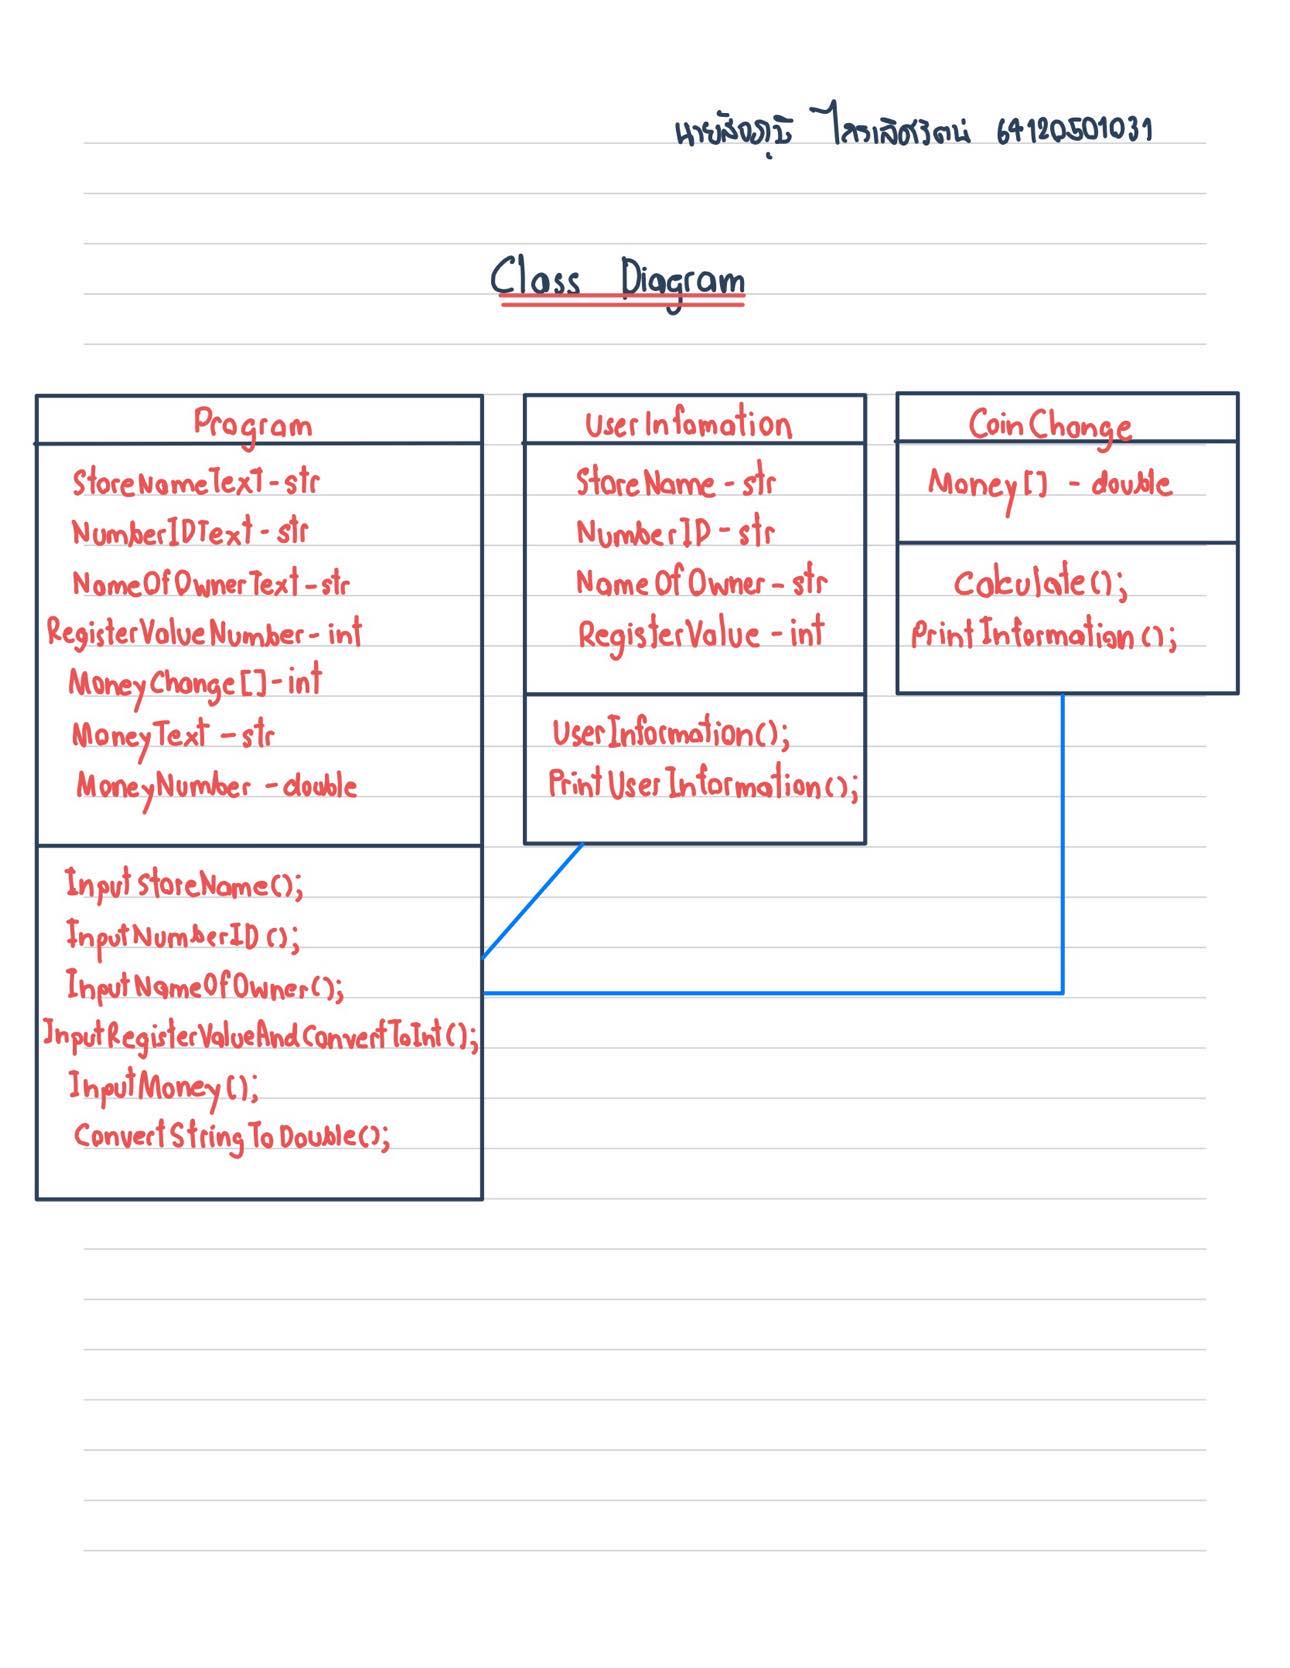 นาย 64120501031
Class Diagram
Program
StoreNameText - str
NumberIDText - str
NameOfOwnerText - str
RegisterValueNumber - int
MoneyChange[] - int
MoneyText - str
MoneyNumber - double
InputStoreName();
InputNumberID();
InputNameOfOwner();
InputRegisterValueAndConvertToInt();
InputMoney();
ConvertStringToDouble();
UserInfomation
StoreName - str
NumberID - str
NameOfOwner - str
RegisterValue - int
UserInformation();
PrintUserInformation();
CoinChange
Money[] - double
Calculate();
PrintInformation();